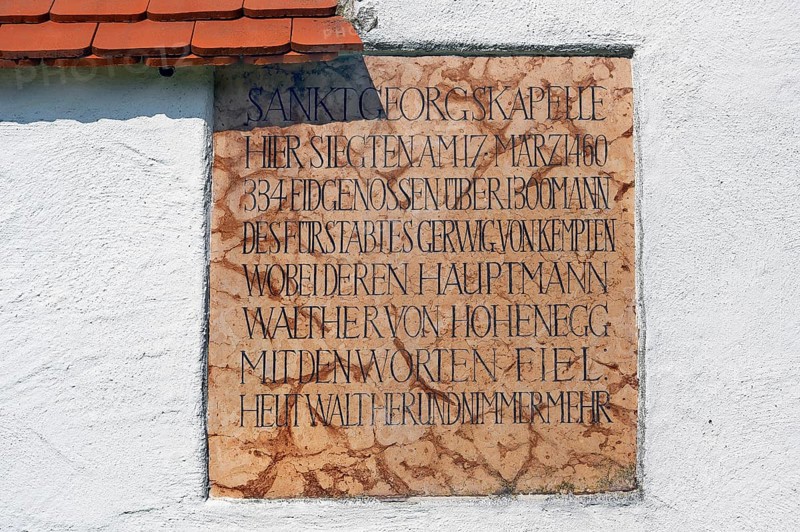 SANKT GEORGSKAPELLE
HIER SIEGTEN AM 17. MÄRZ 1460
334 EIDGENOSSEN ÜBER 1300 MANN
DES FÜRSTABTES GERWIG VON KEMPTEN
WOBEI DEREN HAUPTMANN
WALTHER VON HOHENEGG
MIT DEN WORTEN FIEL:
HEUT WALTHER UND NIMMERMEHR